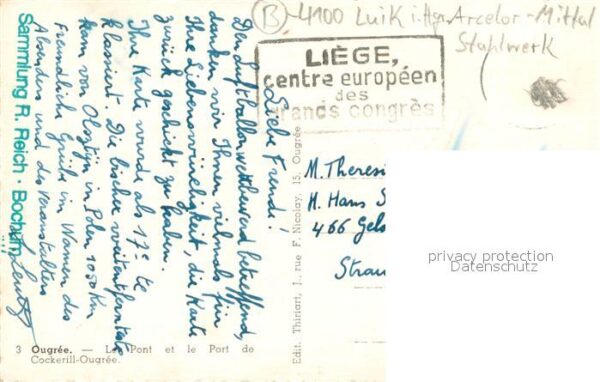 (B) - 4100 Luik i. Hgn Arcelor-Mittal
Stahlwerk
LIÈGE,
centre européen
des
grands congrès
Liebe Freunde!
Den Luftballonwettbewerb betreffend,
danken wir Ihnen vielmals für
Ihre Liebenswürdigkeit, die Karte
zurück geschickt zu haben.
Ihre Karte wurde als 17e te
klassiert. Die bisher weitentfernteste
kam von Olsztyn in Polen 1050 Km
Freundliche Grüße im Namen des
Absenders und des Veranstalters
Sammlung R. Reich · Bochum
M. Theresi
H. Hans S
466 Gels
Strau
privacy protection
Datenschutz
Edit. Thiriart, 1, rue F. Nicolay, 15, Ougrée
3 Ougrée. — Le Pont et le Port de
Cockerill-Ougrée.